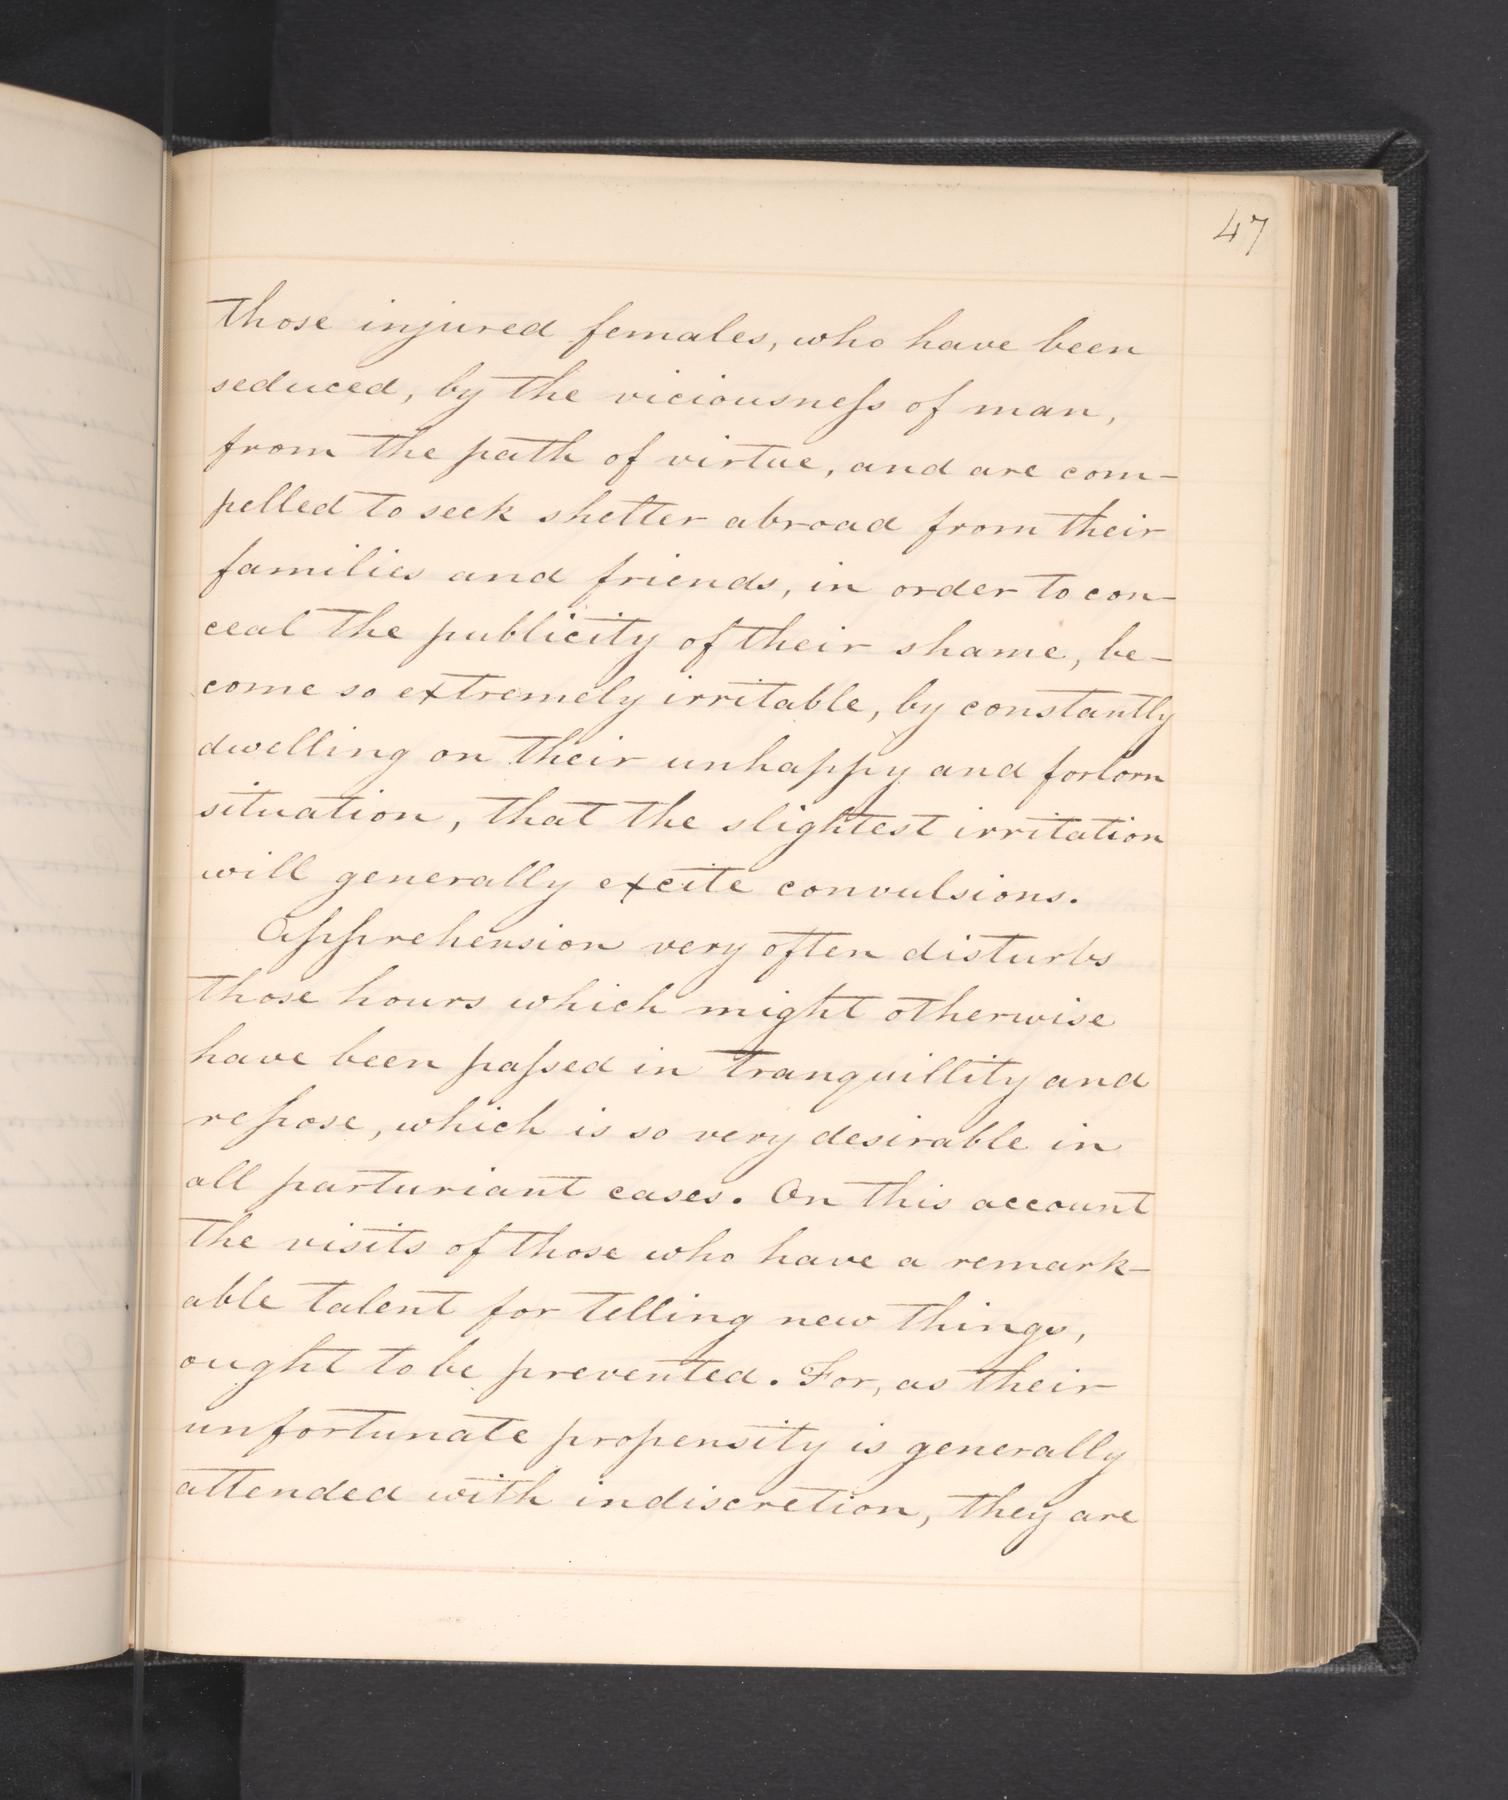 47
those injured females, who have been
seduced, by the viciousneſs of man,
from the path of virtue, and are com-
pelled to seek shelter abroad from their
families and friends, in order to con-
ceal the publicity of their shame, be-
come so extremely irritable, by constantly
dwelling on their unhappy and forlorn
situation, that the slightest irritation
will generally excite convulsions.
Apprehension very often disturbs
those hours which might otherwise
have been paſsed in tranquillity and
repose, which is so very desirable in
all parturiant cases. On this account
the visits of those who have a remark-
able talent for telling new things,
ought to be prevented. For, as their
unfortunate propensity is generally
attended with indiscretion, they are